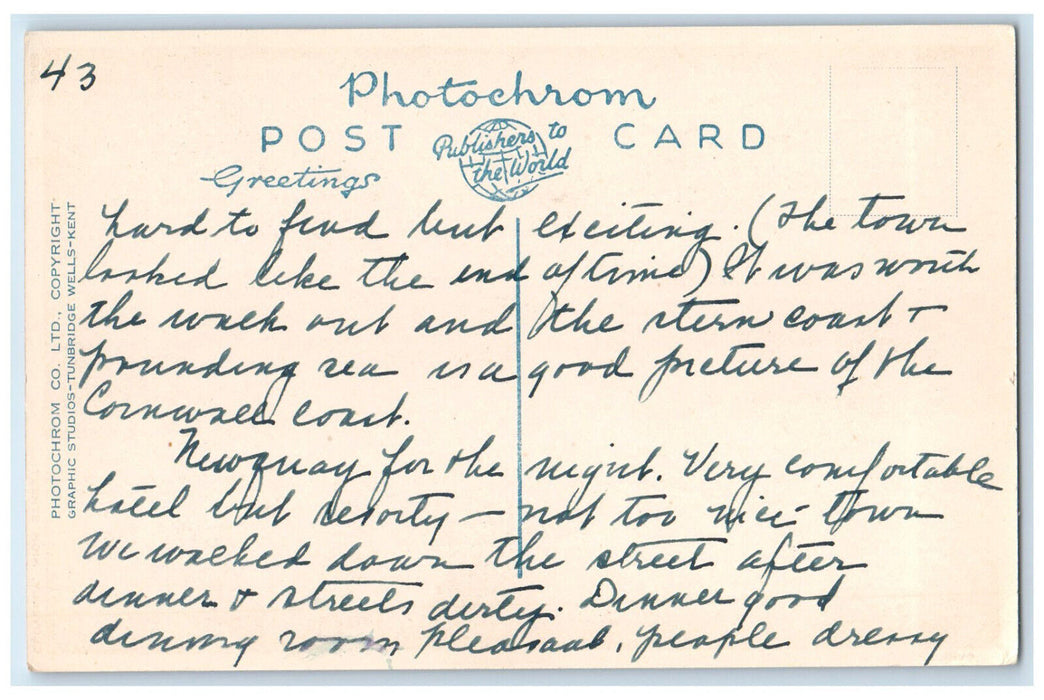 43
Photochrom
POST CARD
Publishers to
the World
Greetings
PHOTOCHROM CO. LTD., COPYRIGHT
GRAPHIC STUDIOS-TUNBRIDGE WELLS-KENT
hard to find but exciting. (The town
looked like the end of time) It was worth
the walk out and the stern coast +
pounding sea is a good picture of the
Cornwall coast.
Newquay for the night. Very comfortable
hotel but resorty — not too nice town
we walked down the street after
dinner & streets dirty. Dinner good
dining room pleasant, people dressy